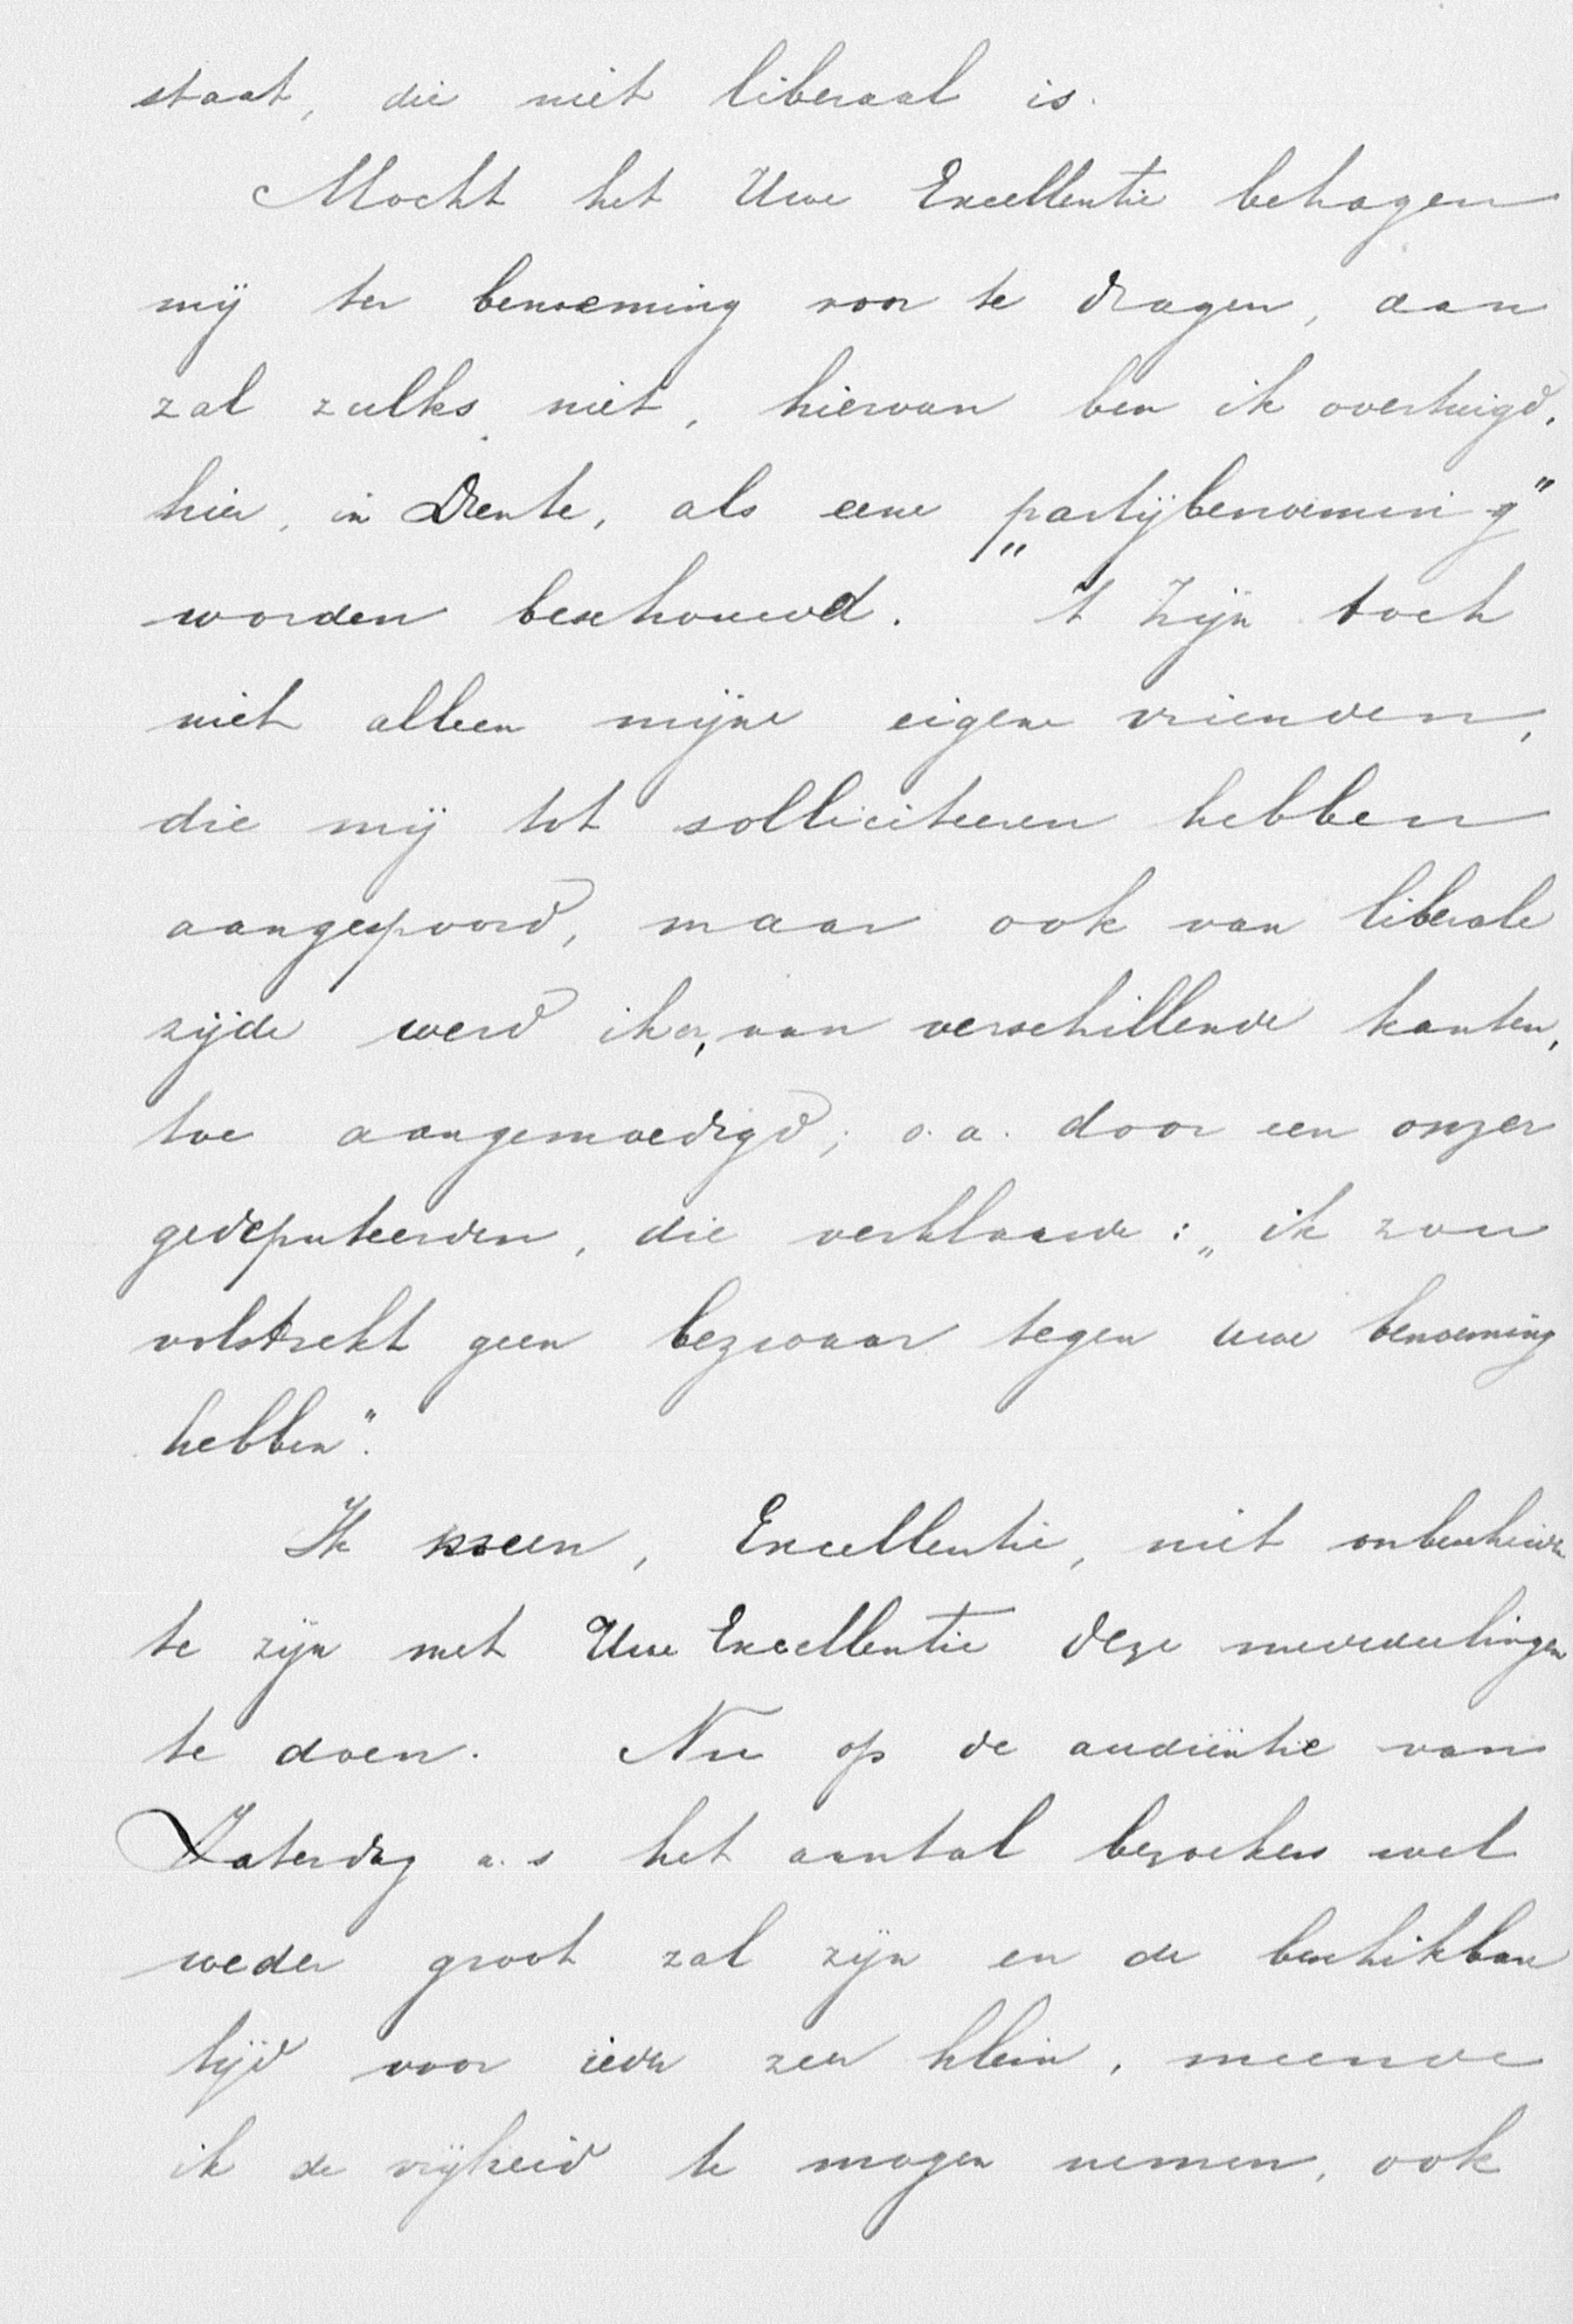 staat, die niet liberaal is.
Mocht het Uwe Excellentie behagen
mij ter benoeming voor te dragen, dan
zal zulks niet, hiervan ben ik overtuigd,
hier, in Drente, als eene „partijbenoeming"
worden beschouwd. 't Zijn toch
niet alleen mijne eigene vrienden,
die mij tot solliciteeren hebben
aangespoord, maar ook van liberale
zijde werd ik er, van verschillende kanten,
toe aangemoedigd; o.a. door een onzer
gedeputeerden, die verklaarde: „ik zou
volstrekt geen bezwaar tegen uwe benoeming
hebben".
Ik meen, Excellentie, niet onbescheiden
te zijn met Uwe Excellentie deze mededeelingen
te doen. Nu op de audiëntie van
Zaterdag a.s het aantal bezoekers wel
weder groot zal zijn en de beschikbare
tijd voor ieder zeer klein, meende
ik de vrijheid te mogen nemen, ook